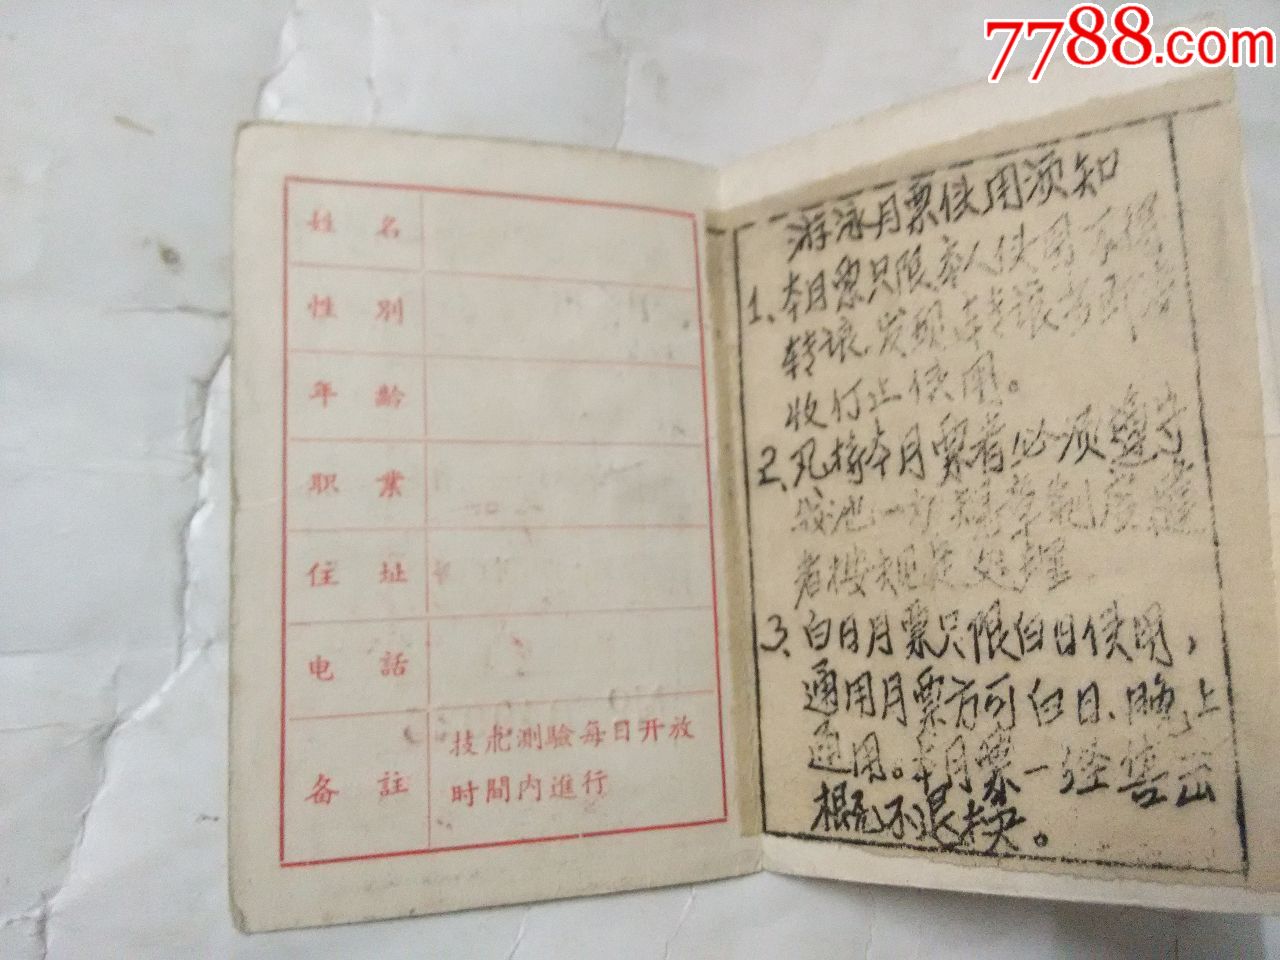 7788.com
姓 名
性 别
年 齡
职 業
住 址
电 話
备 註
技术測驗每日开放
時間内進行
游泳月票使用须知
1、本月票只限本人使用不得
转讓,发现转讓者即
收 停止使用。
2、凡持本月票者必须遵守
泳池一切規章制度違
者按规定处理
3、白日月票只限白日使用,
通用月票方可白日、晚上
通用。本月票一经售出
概不退换。